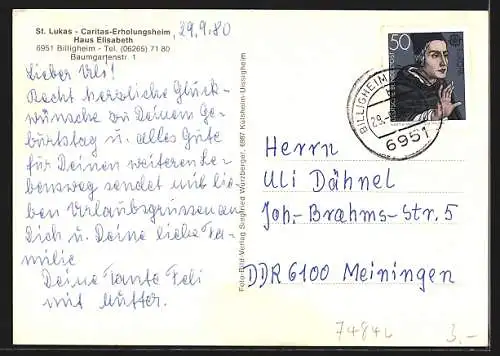 St. Lukas - Caritas-Erholungsheim
Haus Elisabeth
6951 Billigheim - Tel. (06265) 71 80
Baumgartenstr. 1
29.9.80
Lieber Uli!
Recht herzliche Glück-
wünsche zu Deinem Ge-
burtstag u. alles Gute
für Deinen weiteren Le-
bensweg sendet mit lie-
ben Urlaubsgrüssen an
Dich u. Deine liebe Fa-
milie
Deine Tante Feli
mit Mutter.
Foto-Bild-Verlag Siegfried Würzberger, 6987 Külsheim-Uissigheim
50
DEUTSCHE BUNDESPOST
BILLIGHEIM
29.
6951
Herrn
Uli Dähnel
Joh.-Brahms-Str. 5
DDR 6100 Meiningen
7484L
3,-